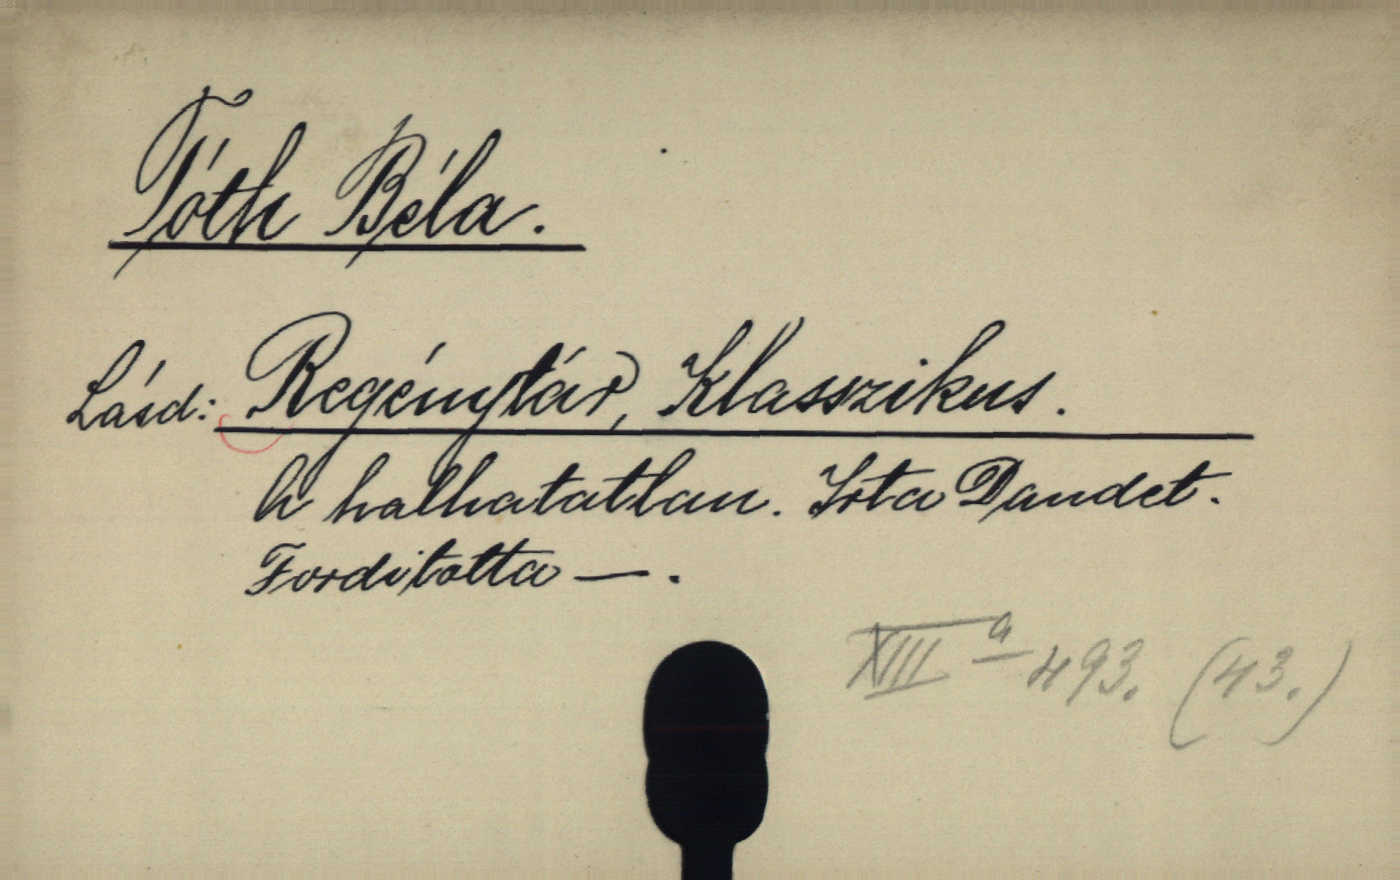 Tóth Béla.
Lásd: Regénytár, Klasszikus.
A halhatatlan. Irta Daudet.
Forditotta — .
XIII a 493. (43.)